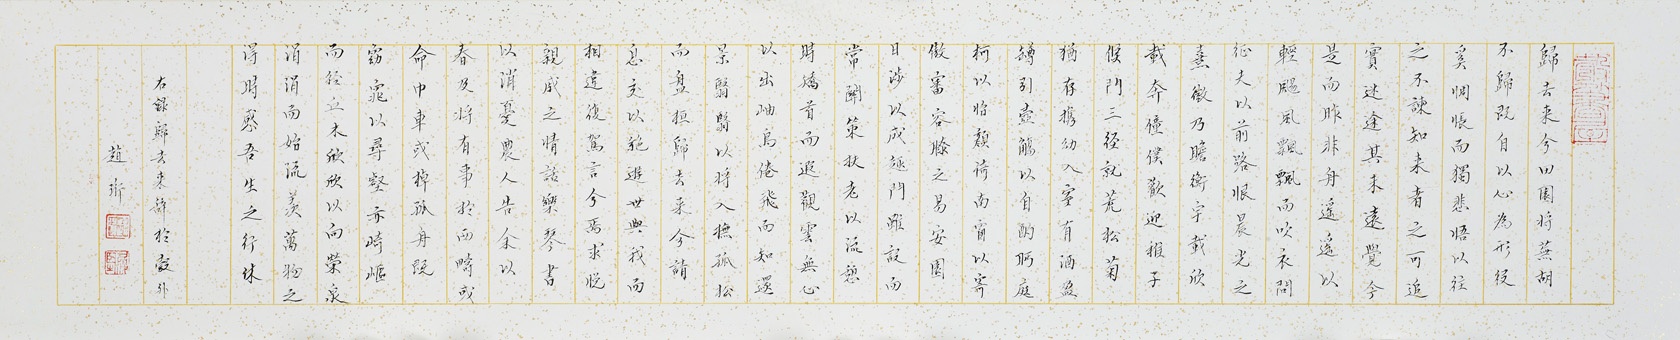 歸去來兮田園將蕪胡
不歸既自以心為形役
奚惆悵而獨悲悟以往
之不諫知來者之可追
實迷途其未遠覺今
是而昨非舟遥遥以
輕颺風飄飄而吹衣問
征夫以前路恨晨光之
熹微乃瞻衡宇載欣
載奔僮僕歡迎稚子
候門三徑就荒松菊
猶存攜幼入室有酒盈
罇引壺觴以自酌眄庭
柯以怡顏倚南窗以寄
傲審容膝之易安園
日涉以成趣門雖設而
常關策扶老以流憩
時矯首而遐觀雲無心
以出岫鳥倦飛而知還
景翳翳以將入撫孤松
而盘桓歸去來兮請
息交以絶遊世與我而
相違復駕言兮焉求悅
親戚之情話樂琴書
以消憂農人告余以
春及將有事於西疇或
命巾車或棹孤舟既
窈窕以尋壑亦崎嶇
而經丘木欣欣以向榮泉
涓涓而始流羨萬物之
得時感吾生之行休
右録歸去來辭於
趙